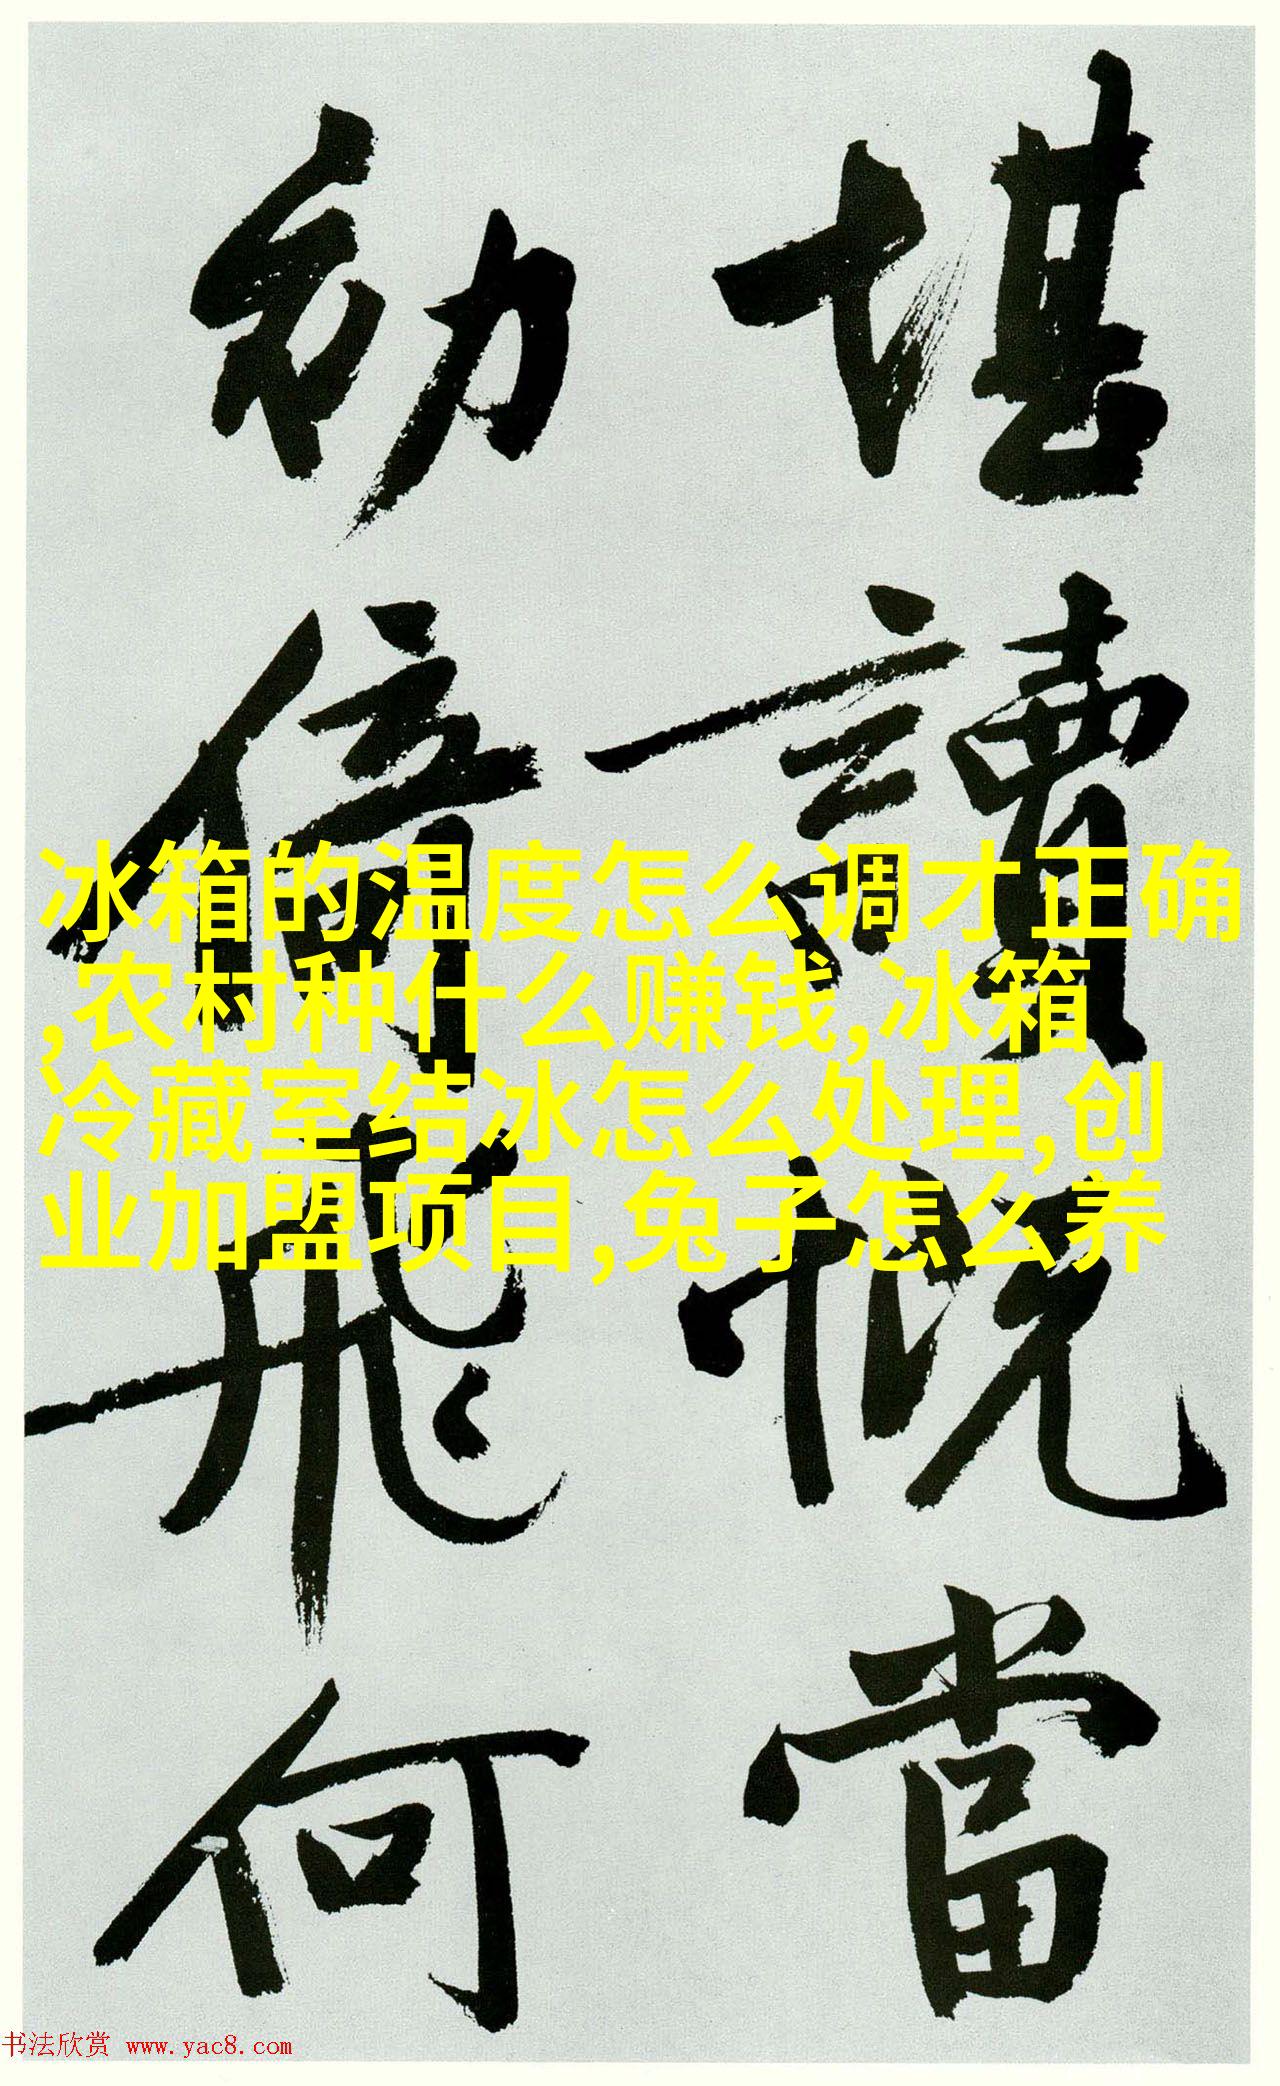 堪讀慨當
初倚飛何
冰箱的温度怎么调才正确
,农村种什么赚钱,冰箱
冷藏室结冰怎么处理,创
业加盟项目,兔子怎么养
书法欣赏 www.yac8.com